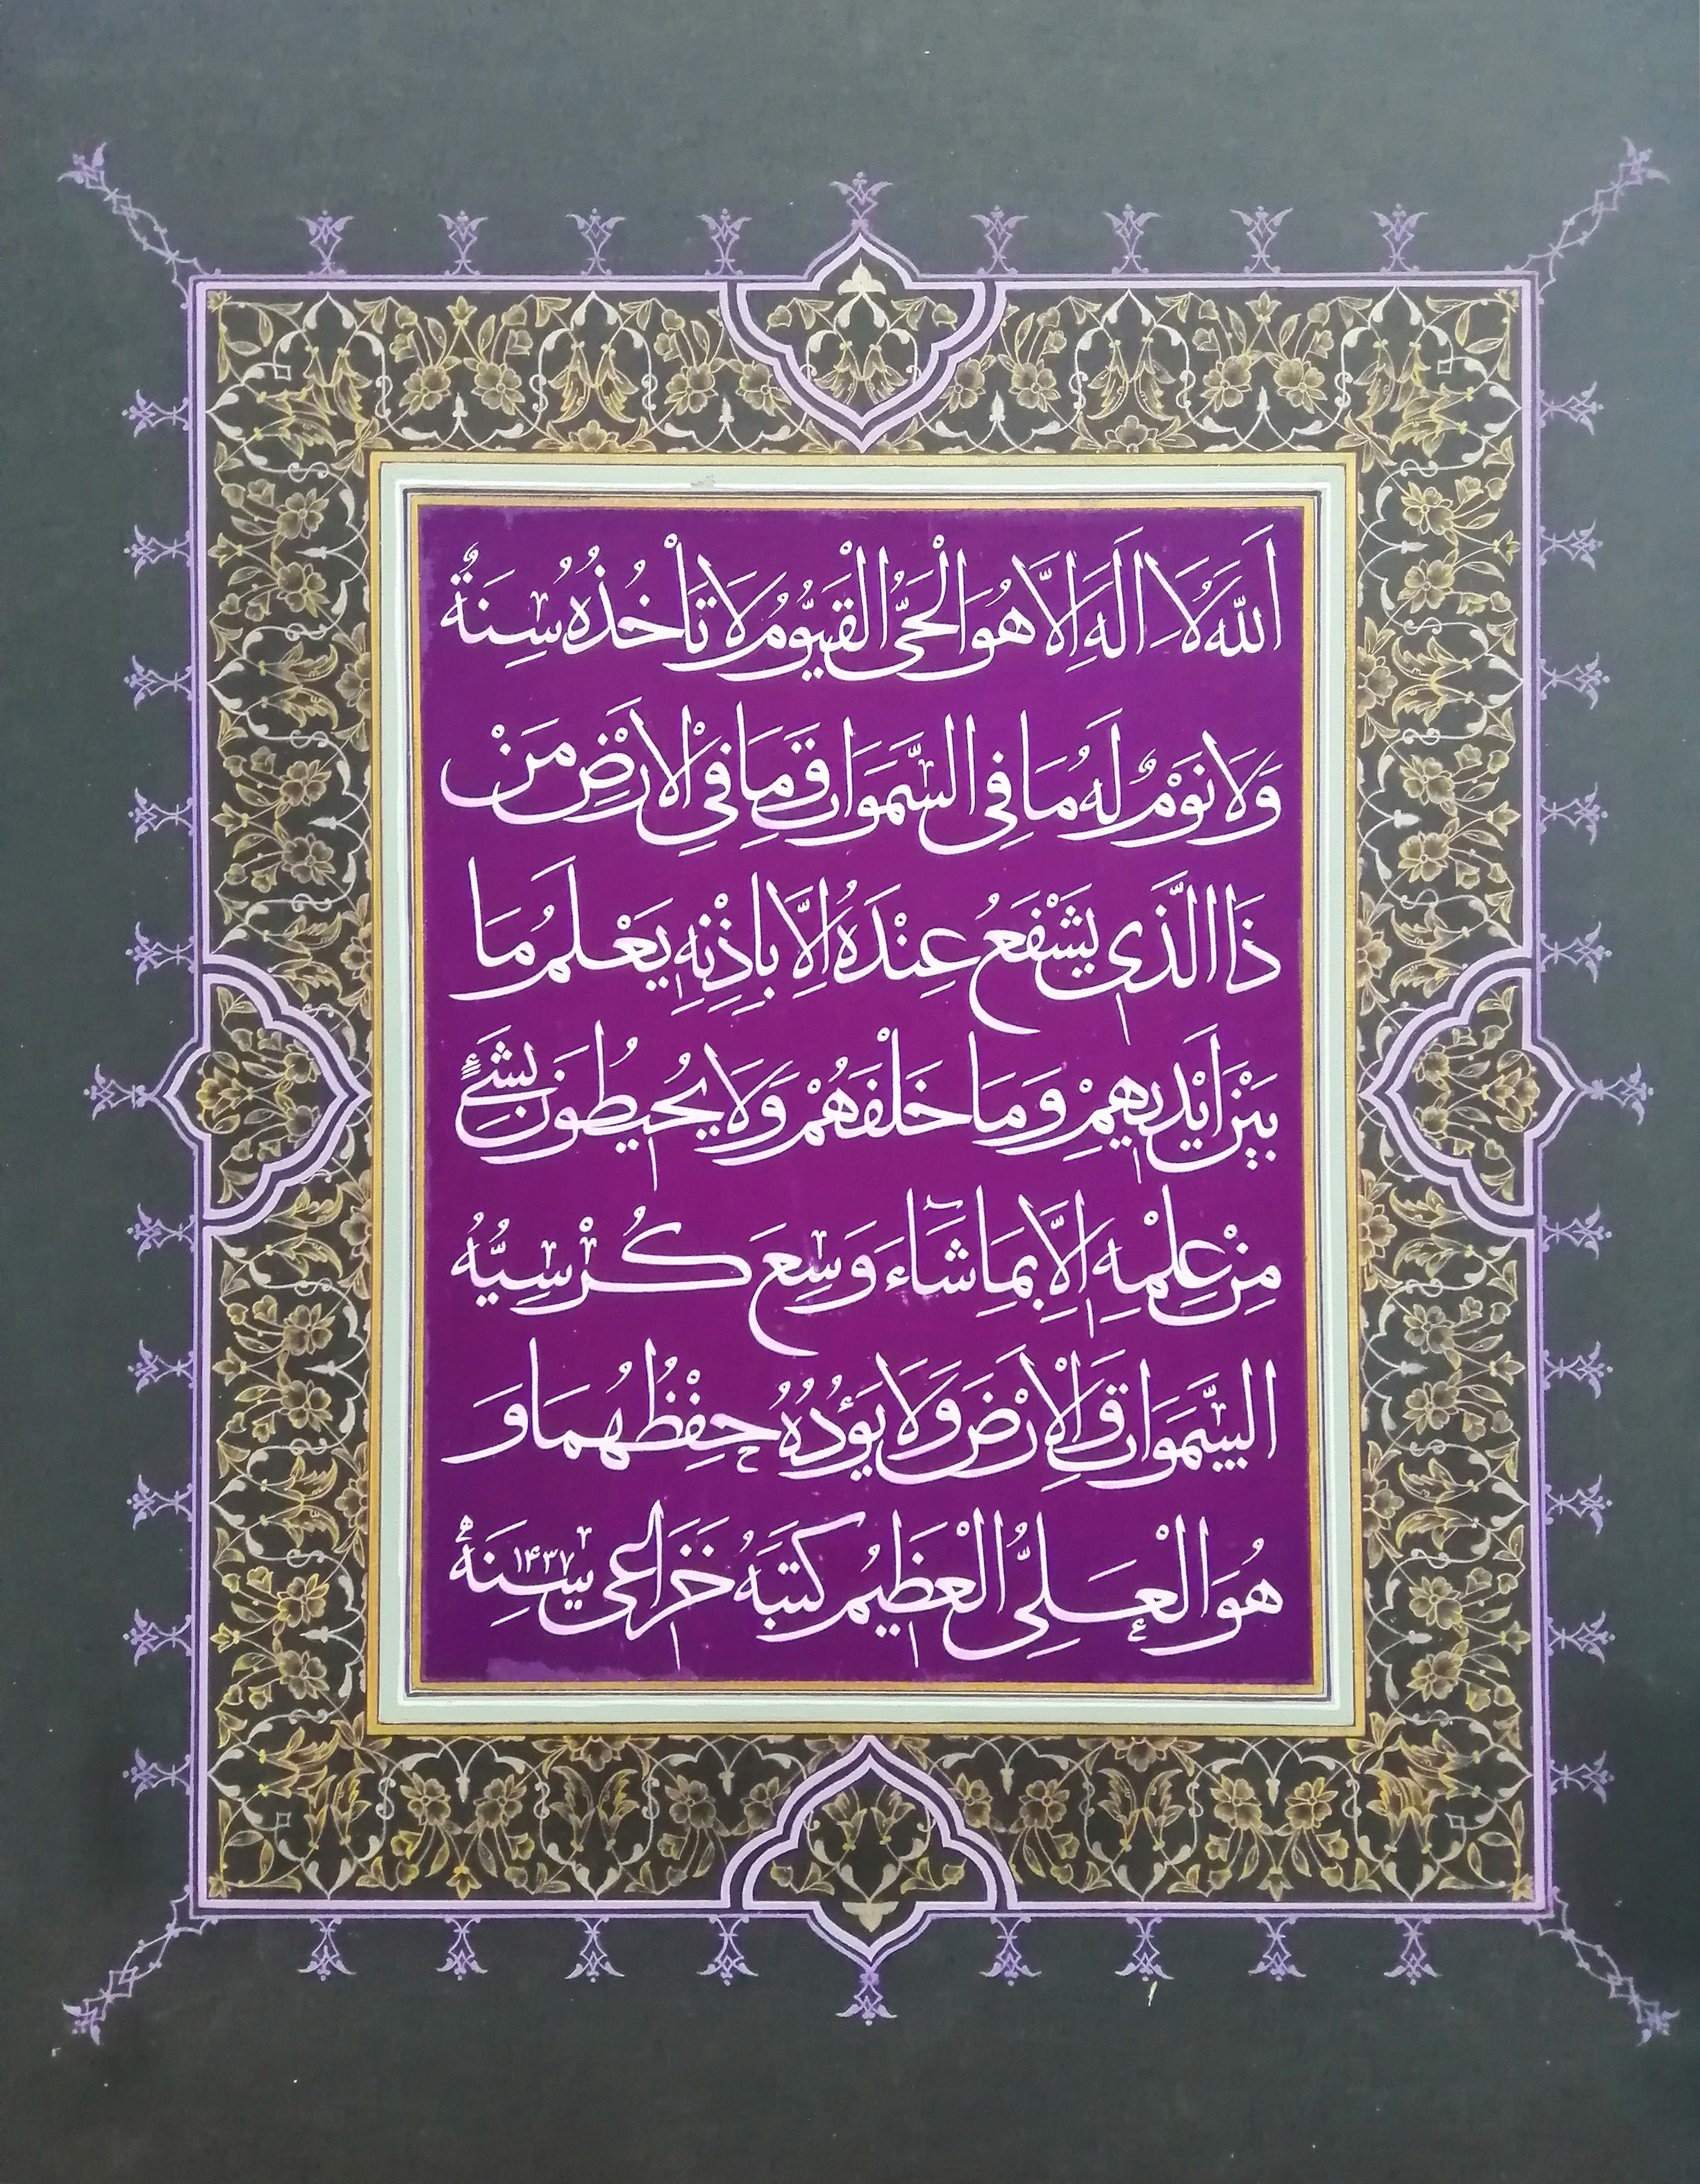 اَللّٰهُ لَا اِلٰهَ اِلَّا هُوَ الْحَيُّ الْقَيُّومُ لَا تَأْخُذُهُ سِنَةٌ
وَلَا نَوْمٌ لَهُ مَا فِي السَّمَوَاتِ وَمَا فِي الْاَرْضِ مَنْ
ذَا الَّذِي يَشْفَعُ عِنْدَهُ اِلَّا بِاِذْنِهِ يَعْلَمُ مَا
بَيْنَ اَيْدِيهِمْ وَمَا خَلْفَهُمْ وَلَا يُحِيطُونَ بِشَيْءٍ
مِنْ عِلْمِهِ اِلَّا بِمَا شَاءَ وَسِعَ كُرْسِيُّهُ
السَّمَوَاتِ وَالْاَرْضَ وَلَا يَؤُدُهُ حِفْظُهُمَا وَ
هُوَ الْعَلِيُّ الْعَظِيمُ كَتَبَهُ خَزَاعِي سَنَة ۱۴۳۷